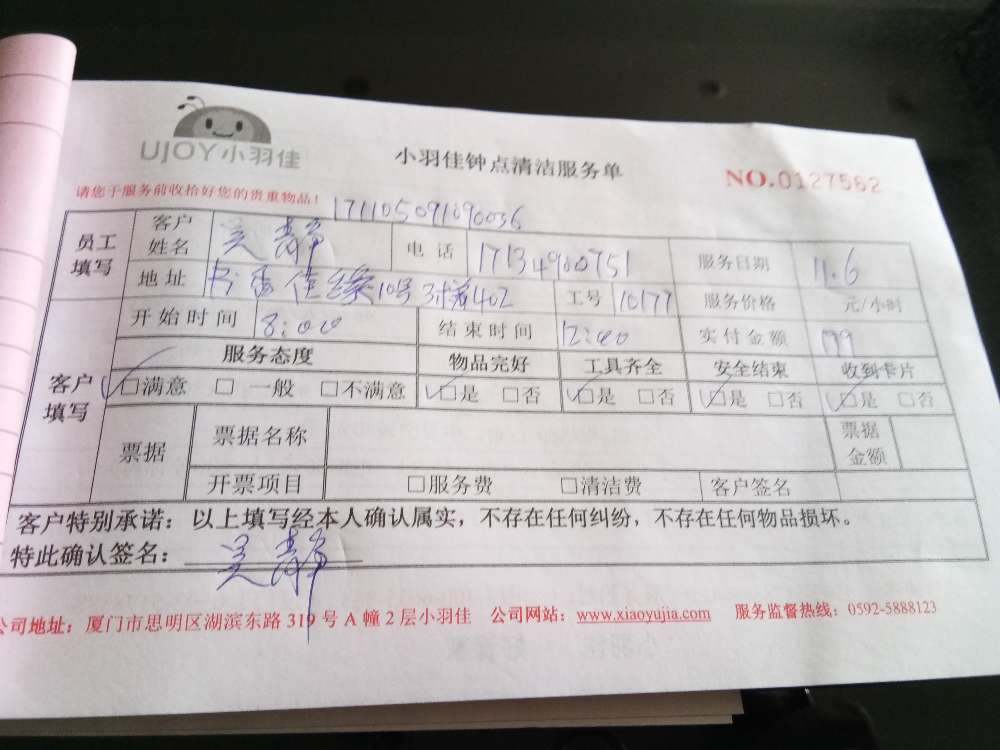 UJOY小羽佳
小羽佳钟点清洁服务单
NO.0127562
请您于服务前收拾好您的贵重物品！
171105091090036
员工填写 客户姓名 吴静 电话 17134900751 服务日期 11.6
地址 佳缘10号 402 工号 10177 服务价格 元/小时
开始时间 8:00 结束时间 12:00 实付金额 199
客户填写 服务态度 物品完好 工具齐全 安全结束 收到卡片
☑满意 □一般 □不满意 ☑是 □否 ☑是 □否 ☑是 □否 ☑是 □否
票据 票据名称 票据金额
开票项目 □服务费 □清洁费 客户签名
客户特别承诺：以上填写经本人确认属实，不存在任何纠纷，不存在任何物品损坏。
特此确认签名：吴静
公司地址：厦门市思明区湖滨东路319号A幢2层小羽佳 公司网站：www.xiaoyujia.com 服务监督热线：0592-5888123